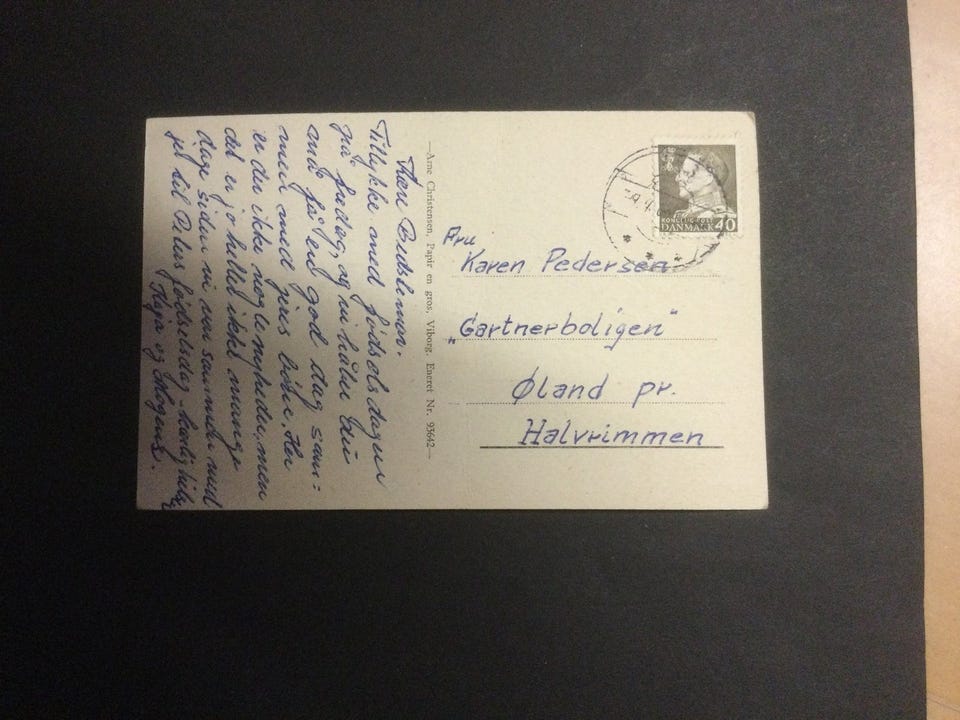 Kære Bedstemor.
Tillykke med fødselsdagen
på fredag, og vi håber Du
må få en god dag sam=
men med jeres børn. Her
er der ikke nogle nyheder, men
det er jo heller ikke mange
dage siden vi var sammen med
jer til fødselsdag. Kærlig hilsen
og Mogens.
—Arne Christensen, Papir en gros, Viborg. Eneret Nr. 93642—
KONGELIG POST
DANMARK 40
Fru
Karen Pedersen
"Gartnerboligen"
Øland pr.
Halvrimmen